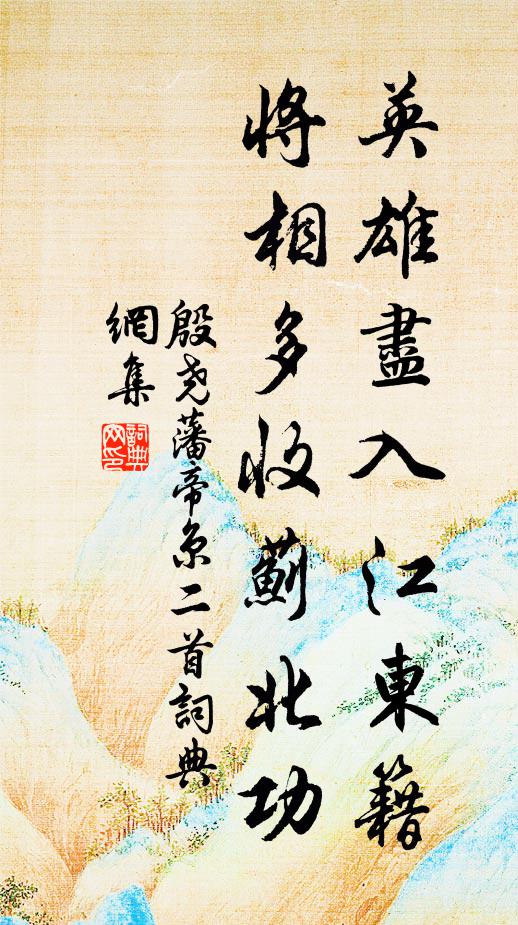 英雄盡入江東籍
將相多收薊北功
殷尧藩帝京二首詞典
網集
詞典
网印